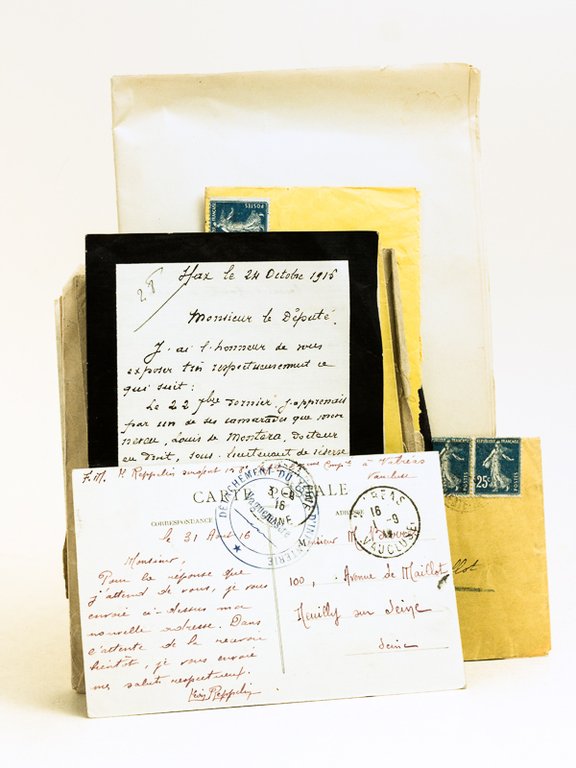 POSTES
28
Dax le 24 Octobre 1915
Monsieur le Député.
J'ai l'honneur de vous
exposer très respectueusement ce
qui suit :
Le 22 7bre dernier, j'apprenais
par un de ses camarades que mon
neveu, Louis de Montera, docteur
en Droit, sous-lieutenant de réserve
F.M. Reppelin sergent à Valréas
Vaucluse
CARTE POSTALE
CORRESPONDANCE
ADRESSE
DETACHEMENT DU D'INFANTERIE
3-9
16
VALREAS
16
-9
VAUCLUSE
le 31 Août 16
Monsieur,
Pour la réponse que
j'attend de vous, je vous
envoie ci-dessus ma
nouvelle adresse. Dans
l'attente de la recevoir
bientôt, je vous envoie
mes saluts respectueux.
Léon Reppelin
Monsieur M.
100, Avenue de Maillot
Neuilly sur Seine
Seine
25c
POSTES